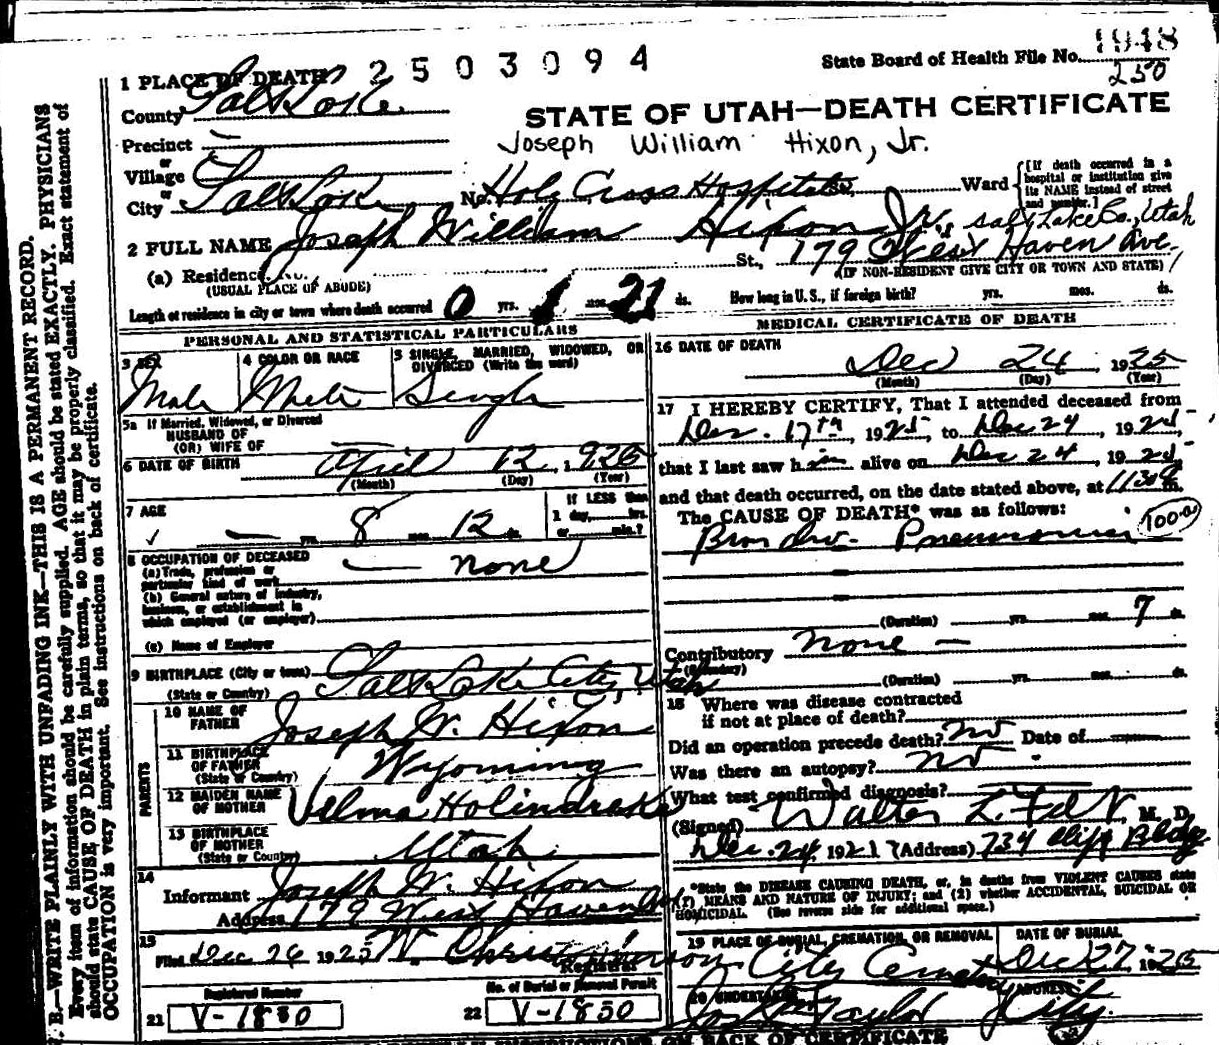 1948
2503094
State Board of Health File No.
250
1 PLACE OF DEATH
County Salt Lake
STATE OF UTAH—DEATH CERTIFICATE
Precinct —
Joseph William Hixon, Jr.
or
Village
or
City Salt Lake No. Holy Cross Hospital Ward [If death occurred in a hospital or institution give its NAME instead of street and number.]
2 FULL NAME Joseph William Hixon Jr.
Salt Lake Co., Utah
(a) Residence. No. St., 179 West Haven Ave.
(USUAL PLACE OF ABODE) (IF NON-RESIDENT GIVE CITY OR TOWN AND STATE)
Length of residence in city or town where death occurred 0 yrs. mos. 21 ds. How long in U.S., if foreign birth? yrs. mos. ds.
PERSONAL AND STATISTICAL PARTICULARS
3 SEX
Male
4 COLOR OR RACE
White
5 SINGLE, MARRIED, WIDOWED, OR DIVORCED (Write the word)
Single
5a If Married, Widowed, or Divorced
HUSBAND OF
(OR) WIFE OF
6 DATE OF BIRTH April 12, 1925
(Month) (Day) (Year)
7 AGE
— 8 mos. 12 ds.
If LESS than
1 day, hrs.
or min.?
8 OCCUPATION OF DECEASED — none
(a) Trade, profession or
particular kind of work
(b) General nature of industry,
business, or establishment in
which employed (or employer)
(c) Name of Employer
9 BIRTHPLACE (City or town) Salt Lake City, Utah
(State or Country)
PARENTS
10 NAME OF
FATHER Joseph W. Hixon
11 BIRTHPLACE
OF FATHER Wyoming
(State or Country)
12 MAIDEN NAME
OF MOTHER Velma Holindrake
13 BIRTHPLACE
OF MOTHER Utah
(State or Country)
14
Informant Joseph W. Hixon
Address 179 West Haven Ave
15
Filed Dec 26 1925 W. Christopherson
Registrar
Registered Number
21 V-1850
No. of Burial or Removal Permit
22 V-1850
MEDICAL CERTIFICATE OF DEATH
16 DATE OF DEATH
Dec 24, 1925
(Month) (Day) (Year)
17 I HEREBY CERTIFY, That I attended deceased from
Dec. 17th, 1925, to Dec 24, 192
that I last saw him alive on Dec 24, 192
and that death occurred, on the date stated above, at 11:30 m.
The CAUSE OF DEATH* was as follows:
Broncho- Pneumonia
(Duration) yrs. mos. 7 ds.
Contributory none —
(Secondary)
(Duration) yrs. mos. ds.
18 Where was disease contracted
if not at place of death?
Did an operation precede death? no Date of
Was there an autopsy? no
What test confirmed diagnosis?
(Signed) Walter L. M. D.
Dec. 24, 192 (Address) 734 Clift Bldg
*State the DISEASE CAUSING DEATH, or, in deaths from VIOLENT CAUSES state
(1) MEANS AND NATURE OF INJURY; and (2) whether ACCIDENTAL, SUICIDAL OR
HOMICIDAL. (See reverse side for additional space.)
19 PLACE OF BURIAL, CREMATION, OR REMOVAL
City Cemetery
DATE OF BURIAL
Dec 27 1925
20 UNDERTAKER
Taylor
ADDRESS
City.
INSTRUCTIONS ON BACK OF CERTIFICATE
N. B.—WRITE PLAINLY WITH UNFADING INK—THIS IS A PERMANENT RECORD.
Every item of information should be carefully supplied. AGE should be stated EXACTLY. PHYSICIANS
should state CAUSE OF DEATH in plain terms, so that it may be properly classified. Exact statement of
OCCUPATION is very important. See instructions on back of certificate.